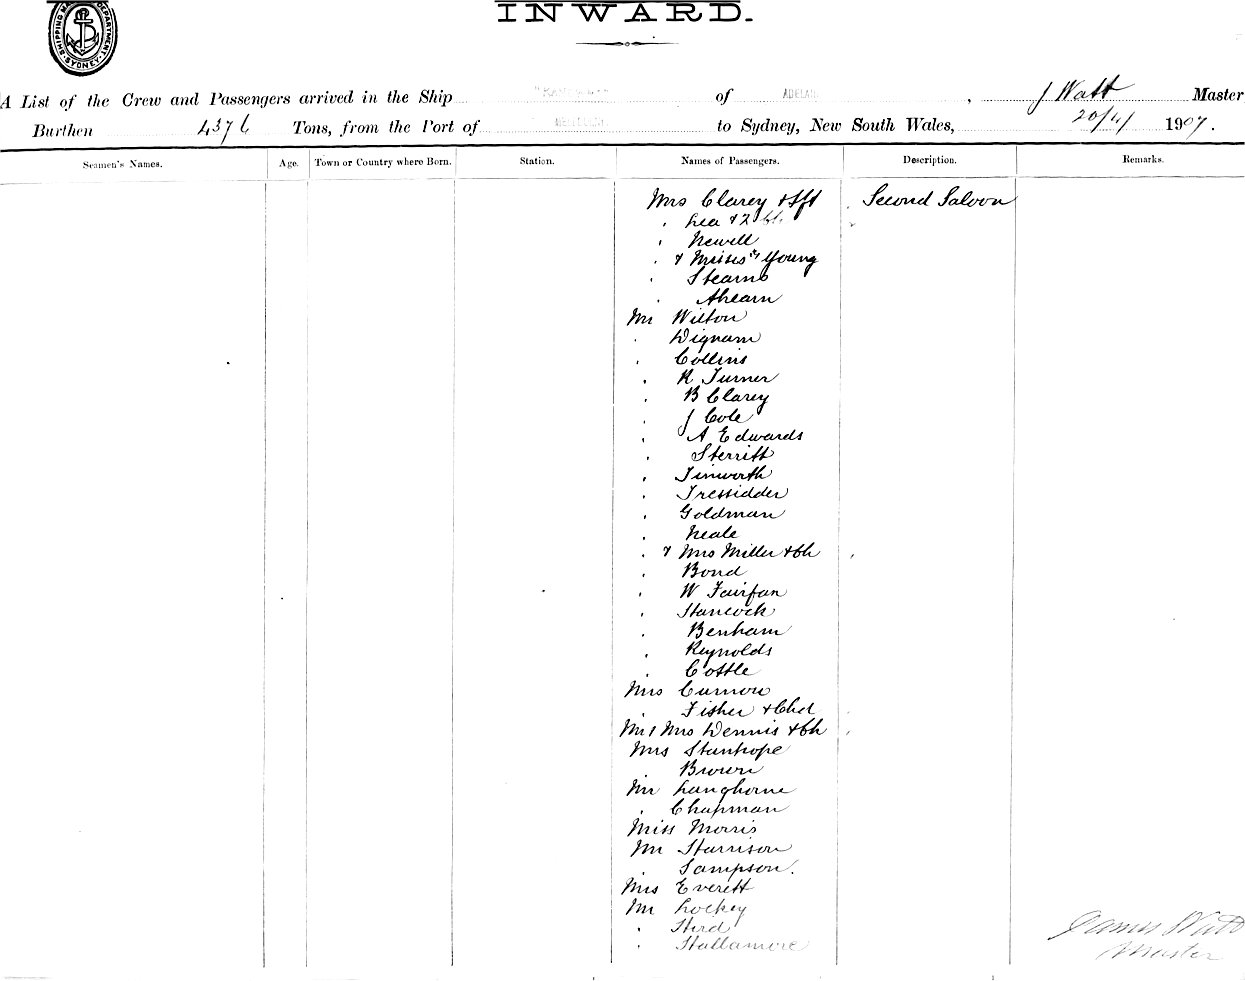 INWARD.
SHIPPING MA DEPARTMENT. SYDNEY.
A List of the Crew and Passengers arrived in the Ship of ADELAI , J Watt Master
Burthen 4376 Tons, from the Port of to Sydney, New South Wales, 20/4/ 1907.
Seamen's Names. Age. Town or Country where Born. Station. Names of Passengers. Description. Remarks.
Mrs Clarey & Second Saloon
" Lea & 2 ch
" Newell
" & Misses Young
" Stearns
" Ahearn
Mr Wilton
" Dignam
" Collins
" R Turner
" B Clarey
" J Cole
" A Edwards
" Sterritt
" Tinworth
" Tressidder
" Goldman
" Neale
" & Mrs Miller & Ch
" Bond
" W Fairfax
" Hancock
" Benham
" Reynolds
" Cottle
Mrs Curnow
" Fisher & Chd
Mr & Mrs Dennis & Ch
Mrs Stanhope
" Brown
Mr Langhorne
" Chapman
Miss Morris
Mr Harrison
" Sampson.
Mrs Everett
Mr Lockey
" Hird
" Hallamore
James Watt
Master